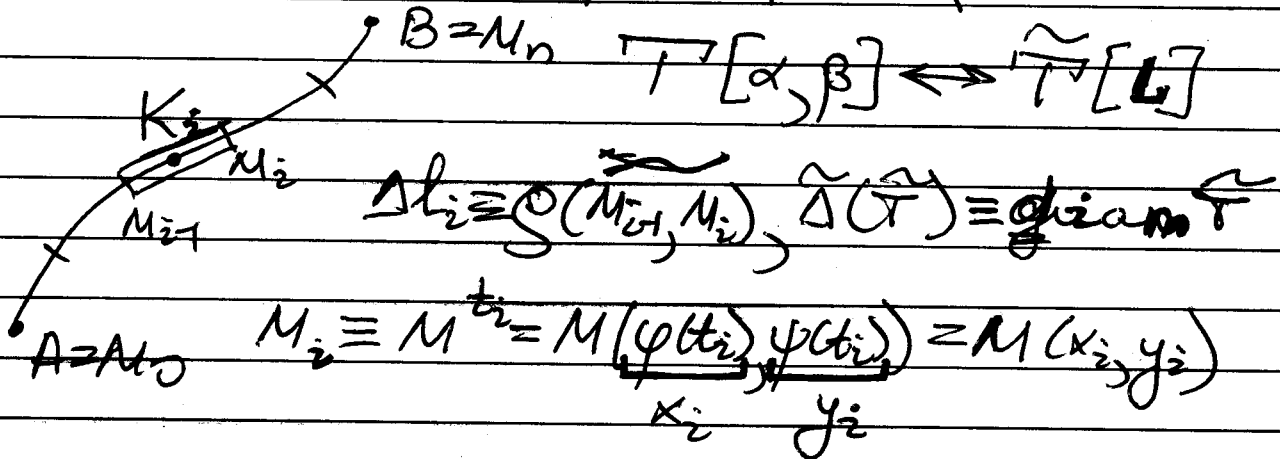 B=Mn T[α,β] ⟷ T̃[L]
Ki
Mi
Mi-1
Δli ≡ ρ(Mi-1, Mi), Δ̃(T̃) ≡ diam T̃
A=M0
Mi ≡ M^ti = M(φ(ti), ψ(ti)) = M(xi, yi)
xi yi